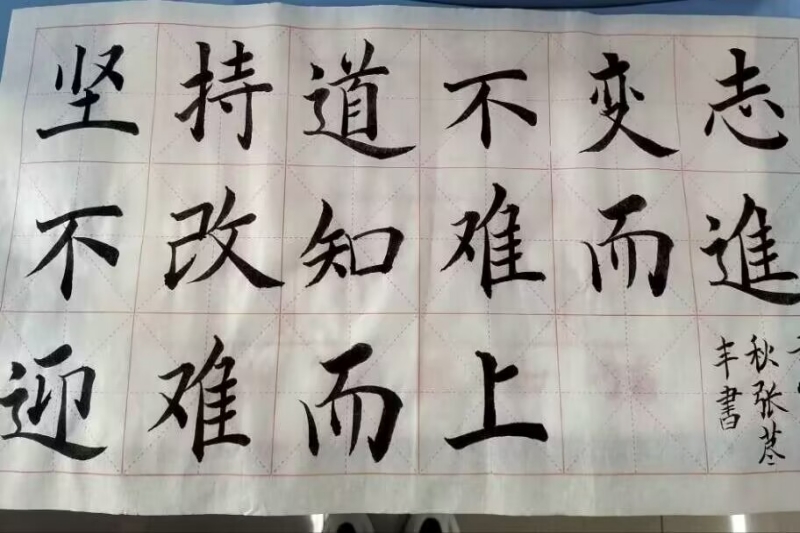 坚持道不变志
不改知难而進
迎难而上
秋张荩
丰書